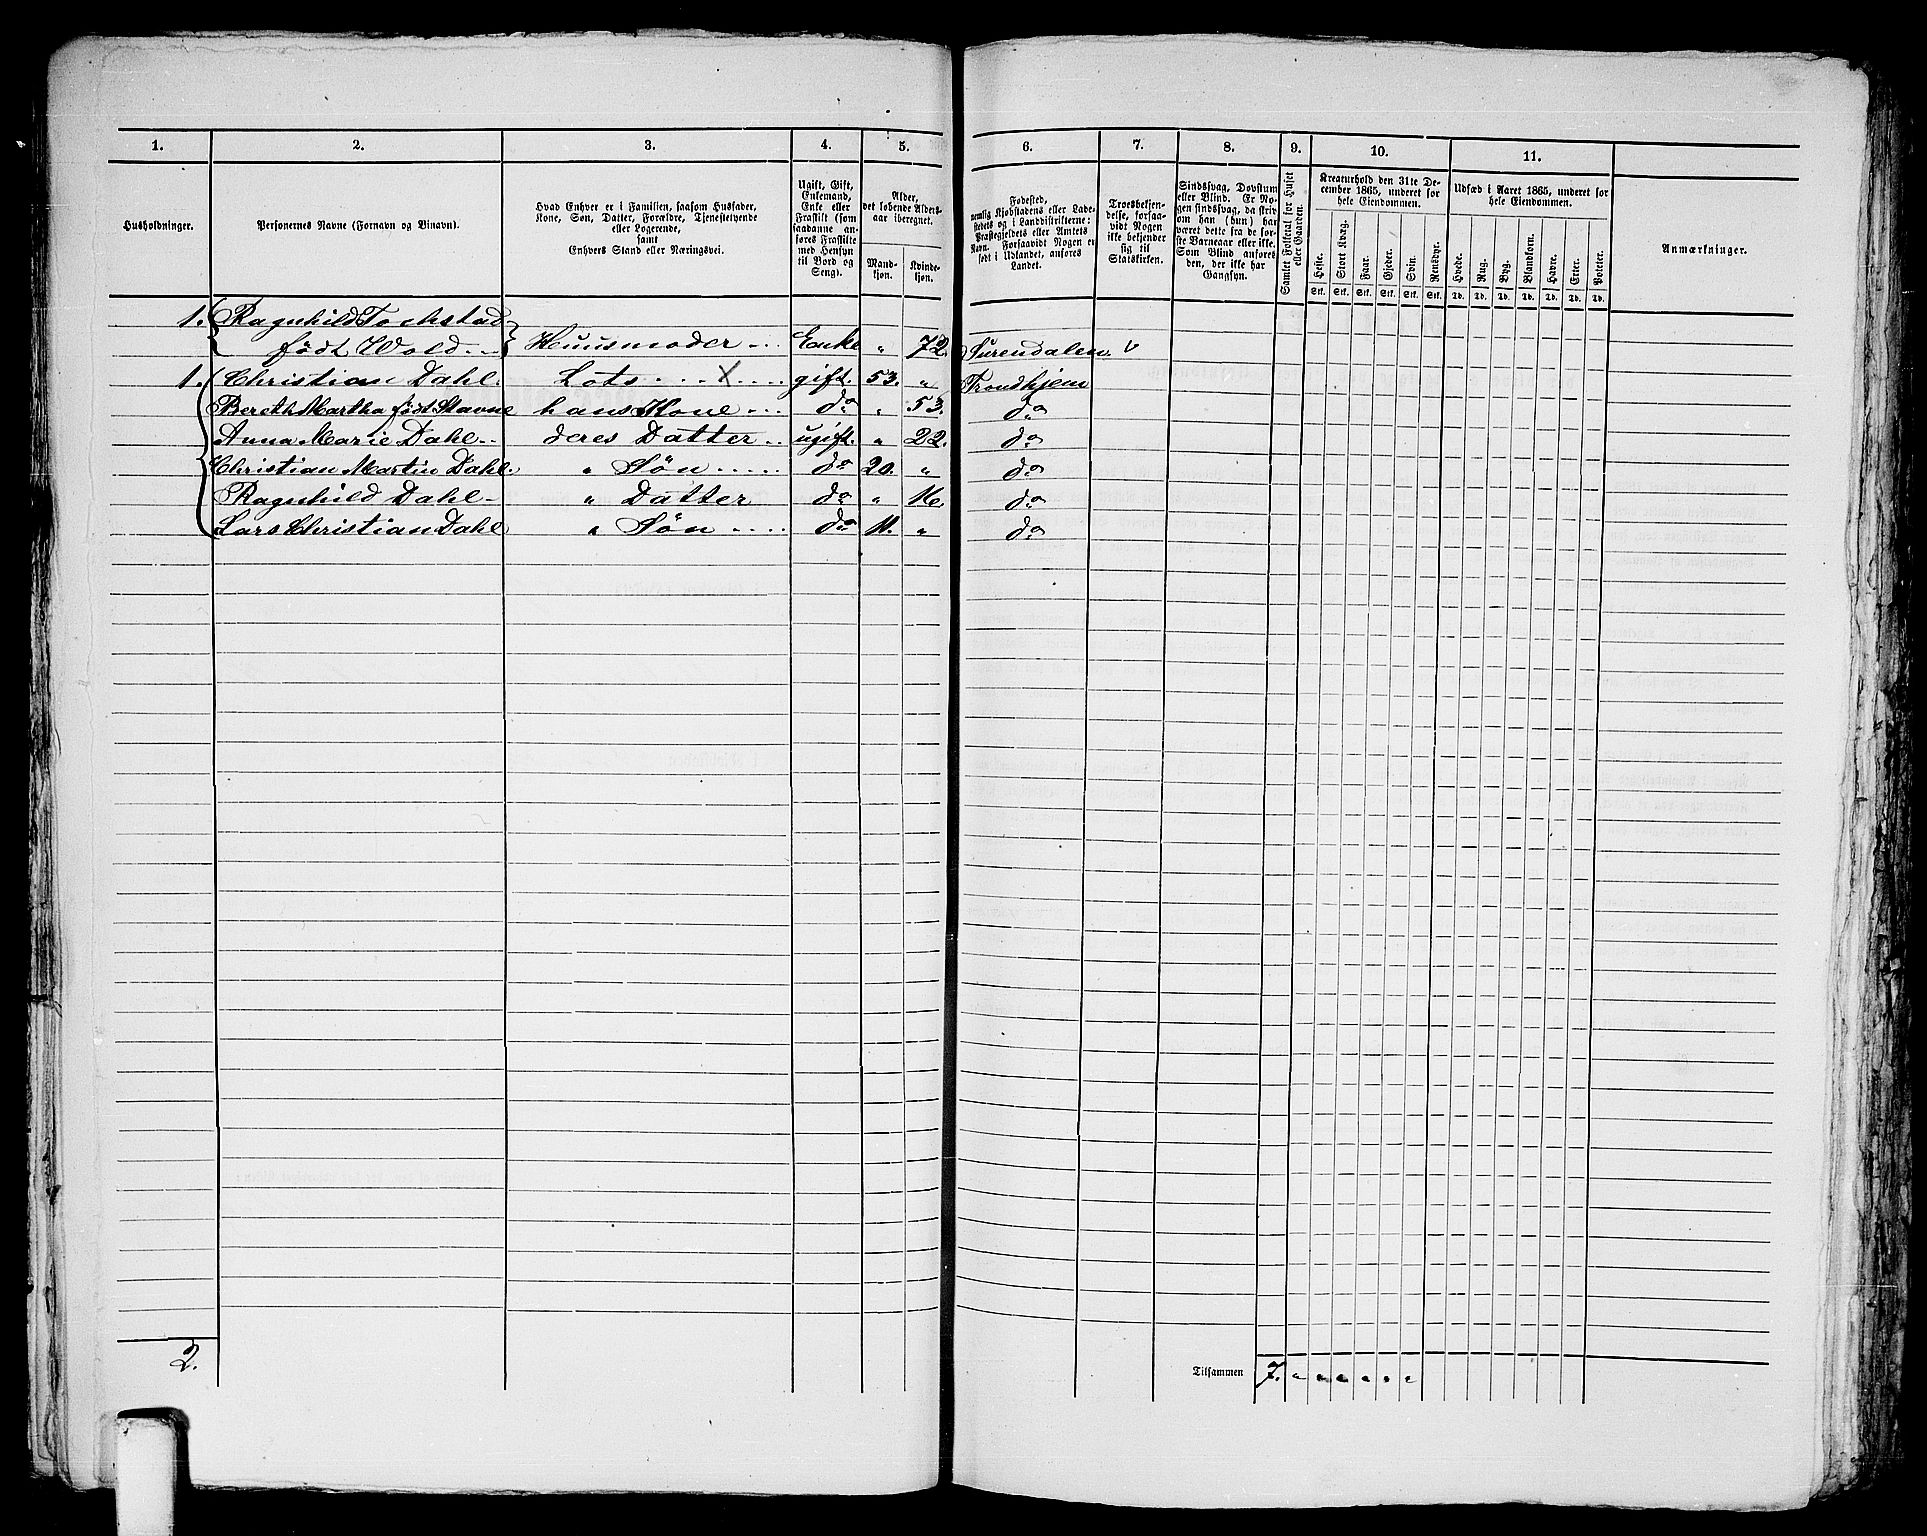 1. 2. 3. 4. 5. 6. 7. 8. 9. 10. 11.
Husholdninger.
Personernes Navne (Fornavn og Binavn).
Hvad Enhver er i Familien, saasom Husfader,
Kone, Søn, Datter, Forældre, Tjenestetyende
eller Logerende,
samt
Enhvers Stand eller Næringsvei.
Ugift, Gift,
Enkemand,
Enke eller
Fraskilt (som
saadanne an-
føres Fraskilte
med Hensyn
til Bord og
Seng).
Alder,
det løbende Alders-
aar iberegnet.
Mand-
kjøn.
Kvinde-
kjøn.
Fødested,
nemlig Kjøbstadens eller Lade-
stedets og i Landdistrikterne:
Præstegjeldets eller Amtets
Navn. Forsaavidt Nogen er
født i Udlandet, anføres
Landet.
Troesbekjen-
delse, forsaa-
vidt Nogen
ikke bekjender
sig til
Statskirken.
Sindssvag, Døvstum
eller Blind. Er No-
gen sindssvag, da skriv
om han (hun) har
været dette fra de før-
ste Barneaar eller ikke.
Som Blind anføres
den, der ikke har
Gangsyn.
Samlet Folketal for Huset
eller Gaarden.
Kreaturhold den 31te De-
cember 1865, underet for
hele Eiendommen.
Heste. Stort Kvæg. Faar. Gjeder. Svin. Rensdyr.
Stk. Stk. Stk. Stk. Stk. Stk.
Udsæd i Aaret 1865, underet for
hele Eiendommen.
Hvede. Rug. Byg. Blandkorn. Havre. Erter. Poteter.
Td. Td. Td. Td. Td. Td. Td.
Anmærkninger.
1. Ragnhild
født Wold Huusmoder Enke " 72. Surendalen
1. Christian Dahl. Lots X gift. 53. " Trondhjem
Bereth Martha født Stavne hans Kone do " 53. do
Anna Marie Dahl deres Datter ugift. " 22. do
Christian Martin Dahl. " Søn do 20. " do
Ragnhild Dahl " Datter do " 16. do
Lars Christian Dahl " Søn do 11. " do
2. Tilsammen 7. " " " " " "